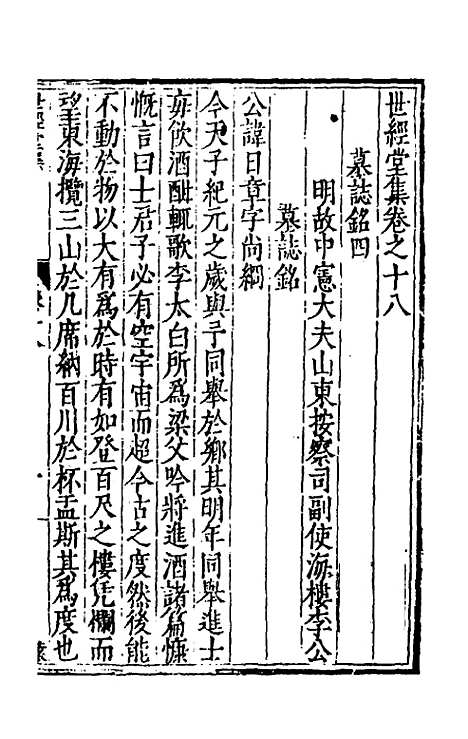 世經堂集卷之十八
墓誌銘四
明故中憲大夫山東按察司副使海樓李公
墓誌銘
公諱日章字尚綱
今天子紀元之歲與予同舉於鄉其明年同舉進士
每飲酒酣輒歌李太白所為梁父吟將進酒諸篇慷
慨言曰士君子必有空宇宙而超今古之度然後能
不動於物以大有為於時有如登百尺之樓凭欄而
望東海攬三山於几席納百川於杯盂斯其為度也